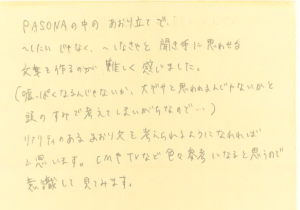 PASONAの中のあおり立てで、
～したいじゃなく、～しなきゃと聞き手に思わせる
文案を作るのが難しく感じました。
(嘘っぽくなるんじゃないか、大ゲサと思われるんじゃないかと
頭のすみで考えてしまいがちなので…)
リアリティのあるあおり文を考えられるようになれれば
と思います。CMやTVなど色々参考になると思うので
意識して見てみます。